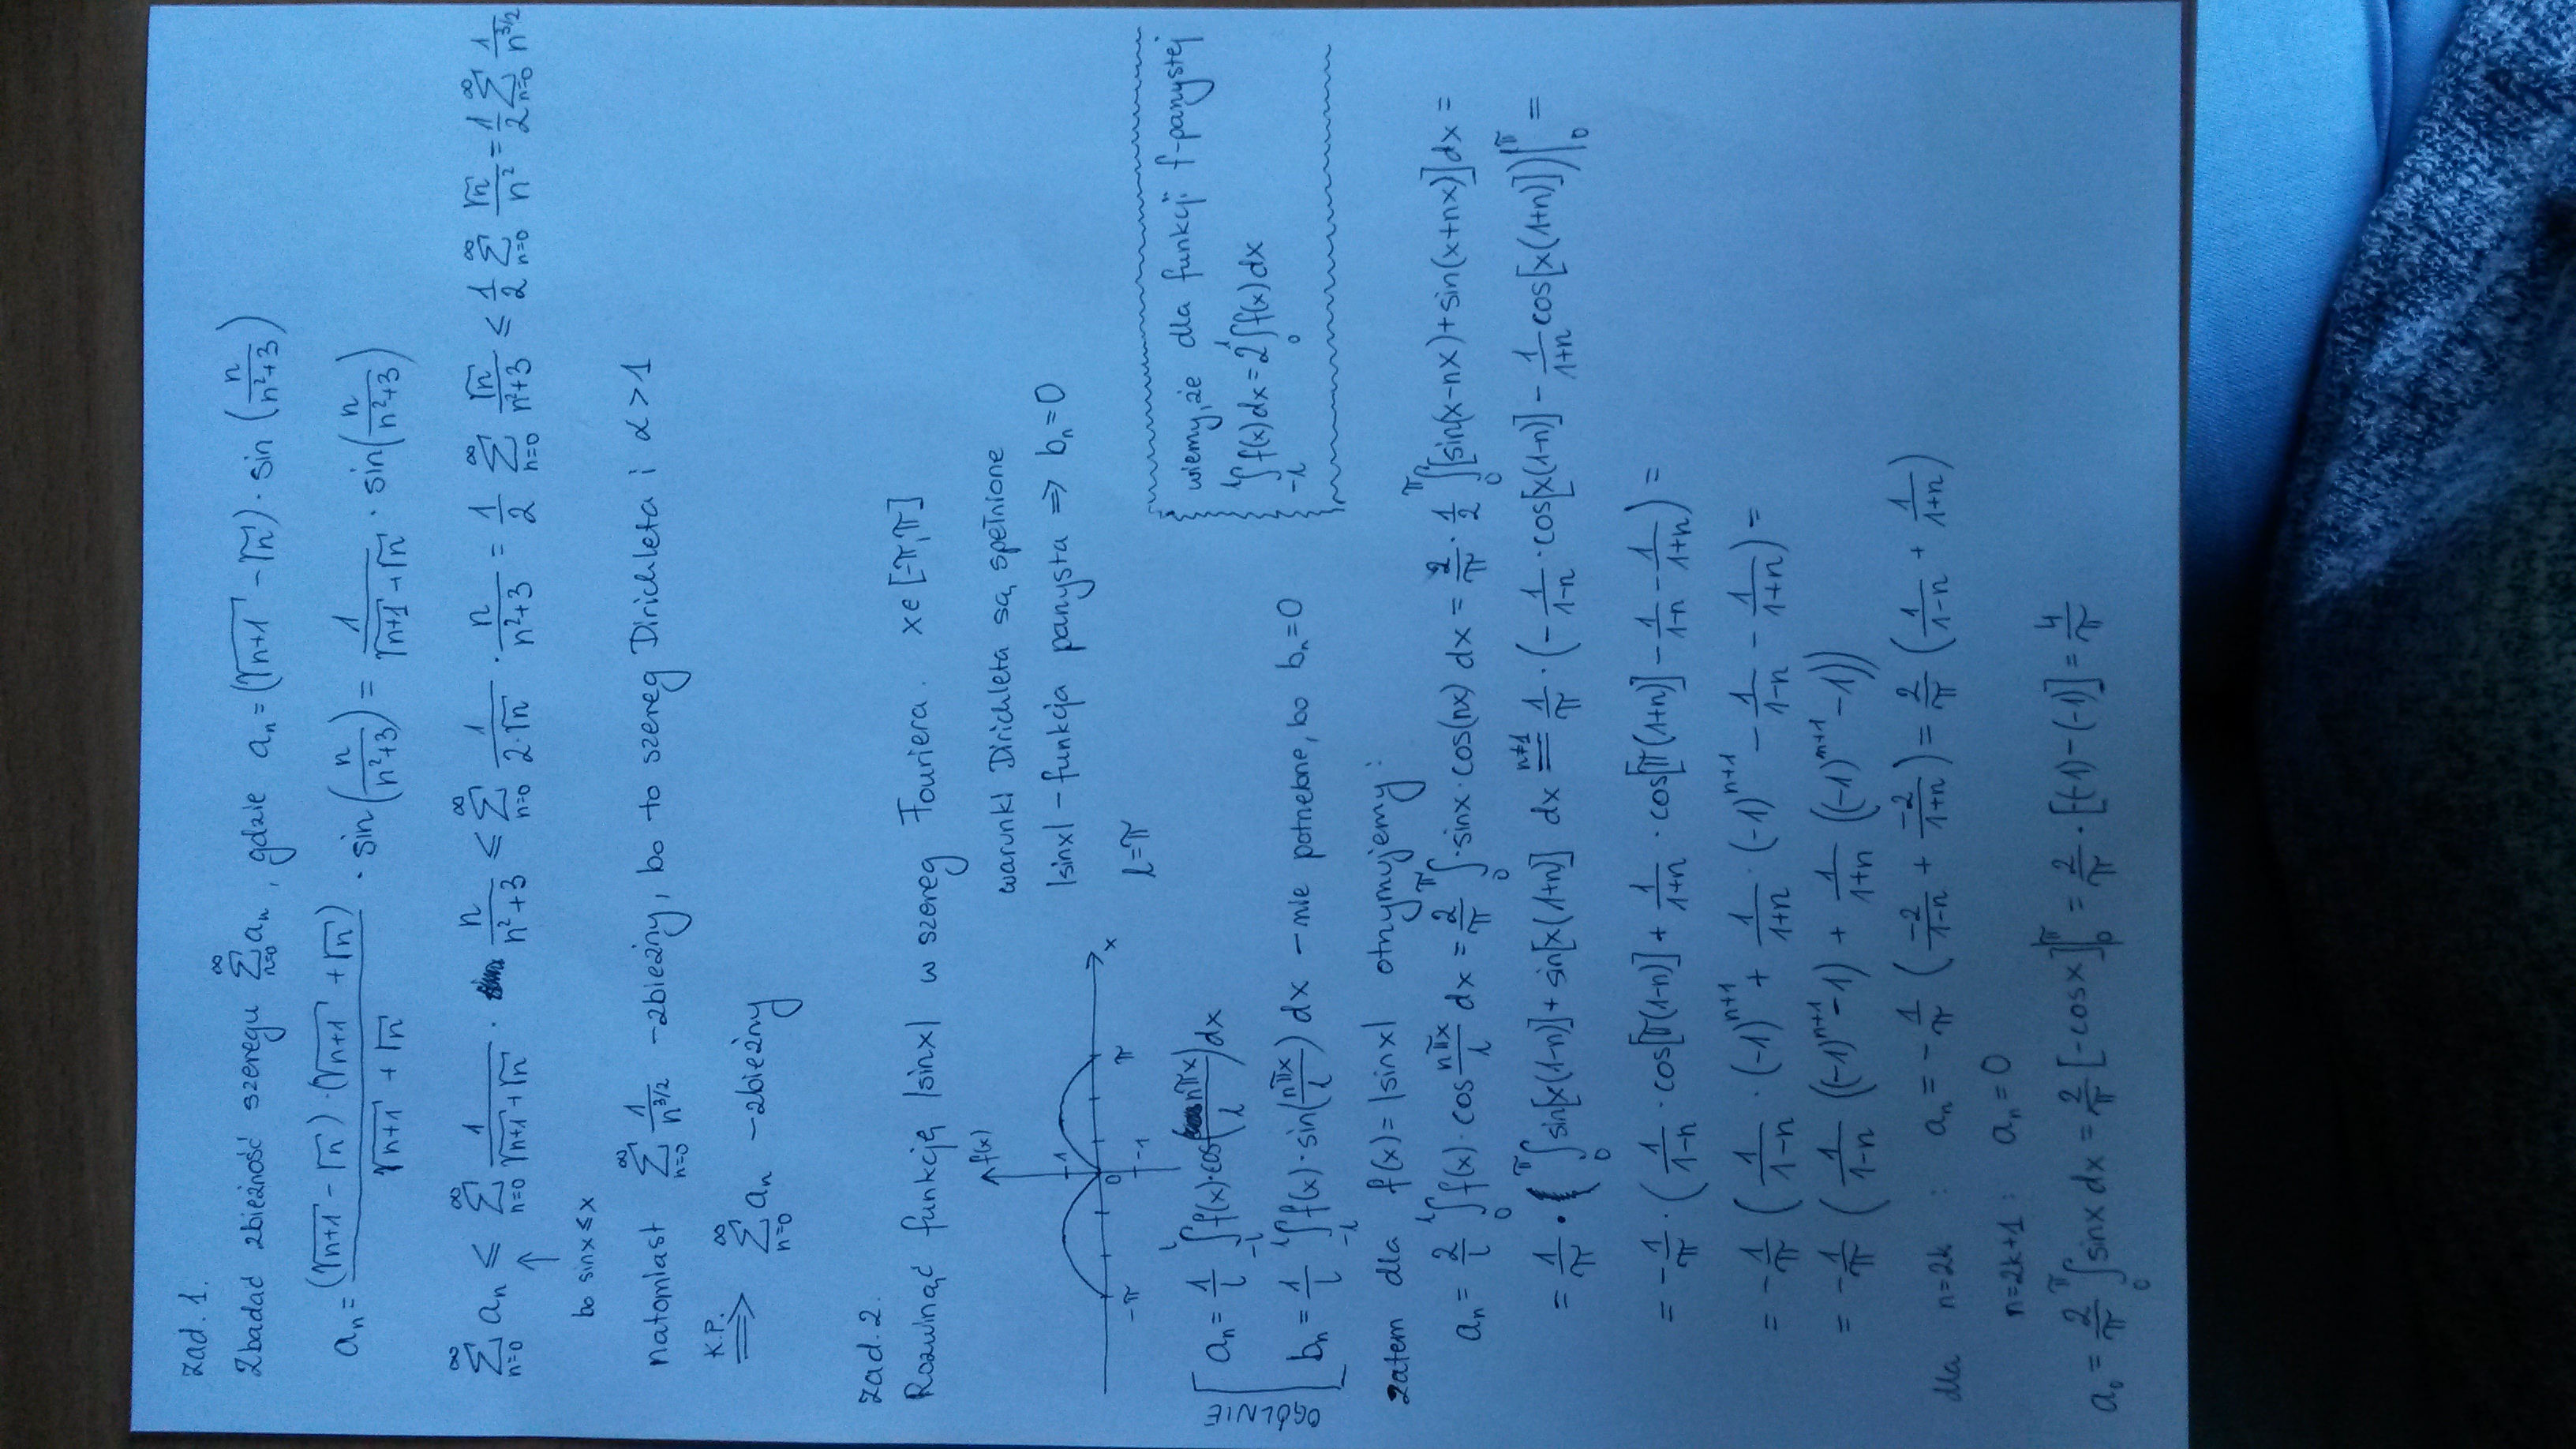 zad. 1.
Zbadać zbieżność szeregu $\sum_{n=0}^{\infty} a_n$, gdzie $a_n = (\sqrt{n+1} - \sqrt{n}) \cdot \sin\left(\frac{n}{n^2+3}\right)$
$a_n = \frac{(\sqrt{n+1} - \sqrt{n}) \cdot (\sqrt{n+1} + \sqrt{n})}{\sqrt{n+1} + \sqrt{n}} \cdot \sin\left(\frac{n}{n^2+3}\right) = \frac{1}{\sqrt{n+1} + \sqrt{n}} \cdot \sin\left(\frac{n}{n^2+3}\right)$
$\sum_{n=0}^{\infty} a_n \le \sum_{n=0}^{\infty} \frac{1}{\sqrt{n+1} + \sqrt{n}} \cdot \frac{n}{n^2+3} \le \sum_{n=0}^{\infty} \frac{1}{2 \cdot \sqrt{n}} \cdot \frac{n}{n^2+3} = \frac{1}{2} \sum_{n=0}^{\infty} \frac{\sqrt{n}}{n^2+3} \le \frac{1}{2} \sum_{n=0}^{\infty} \frac{\sqrt{n}}{n^2} = \frac{1}{2} \sum_{n=0}^{\infty} \frac{1}{n^{3/2}}$
↑
bo sinx ≤ x
natomiast $\sum_{n=0}^{\infty} \frac{1}{n^{3/2}}$ – zbieżny, bo to szereg Dirichleta i α > 1
K.P.
⟹ $\sum_{n=0}^{\infty} a_n$ – zbieżny
zad. 2.
Rozwinąć funkcję |sinx| w szereg Fouriera. x∈[-π,π]
f(x)
1
-π 0 π x
-1
warunki Dirichleta są spełnione
|sinx| – funkcja parzysta ⇒ $b_n = 0$
l = π
OGÓLNIE
$a_n = \frac{1}{l} \int_{-l}^{l} f(x) \cdot \cos\left(\frac{n\pi x}{l}\right) dx$
$b_n = \frac{1}{l} \int_{-l}^{l} f(x) \cdot \sin\left(\frac{n\pi x}{l}\right) dx$ – nie potrzebne, bo $b_n = 0$
wiemy, że dla funkcji f-parzystej
$\int_{-l}^{l} f(x) dx = 2 \int_{0}^{l} f(x) dx$
zatem dla f(x) = |sinx| otrzymujemy:
$a_n = \frac{2}{l} \int_{0}^{l} f(x) \cdot \cos\frac{n\pi x}{l} dx = \frac{2}{\pi} \int_{0}^{\pi} \cdot \sin x \cdot \cos(nx) dx = \frac{2}{\pi} \cdot \frac{1}{2} \int_{0}^{\pi} [\sin(x-nx) + \sin(x+nx)] dx =$
$= \frac{1}{\pi} \cdot \int_{0}^{\pi} \sin[x(1-n)] + \sin[x(1+n)] dx \overset{n \ne 1}{=} \frac{1}{\pi} \cdot \left(-\frac{1}{1-n} \cdot \cos[x(1-n)] - \frac{1}{1+n} \cos[x(1+n)]\right)\Big|_{0}^{\pi} =$
$= -\frac{1}{\pi} \cdot \left(\frac{1}{1-n} \cdot \cos[\pi(1-n)] + \frac{1}{1+n} \cdot \cos[\pi(1+n)] - \frac{1}{1-n} - \frac{1}{1+n}\right) =$
$= -\frac{1}{\pi} \left(\frac{1}{1-n} \cdot (-1)^{n+1} + \frac{1}{1+n} \cdot (-1)^{n+1} - \frac{1}{1-n} - \frac{1}{1+n}\right) =$
$= -\frac{1}{\pi} \left(\frac{1}{1-n} ((-1)^{n+1} - 1) + \frac{1}{1+n} ((-1)^{n+1} - 1)\right)$
dla n=2k : $a_n = -\frac{1}{\pi} \left(\frac{-2}{1-n} + \frac{-2}{1+n}\right) = \frac{2}{\pi} \left(\frac{1}{1-n} + \frac{1}{1+n}\right)$
n=2k+1 : $a_n = 0$
$a_0 = \frac{2}{\pi} \int_{0}^{\pi} \sin x dx = \frac{2}{\pi} [-\cos x]\Big|_{0}^{\pi} = \frac{2}{\pi} \cdot [-(-1) - (-1)] = \frac{4}{\pi}$